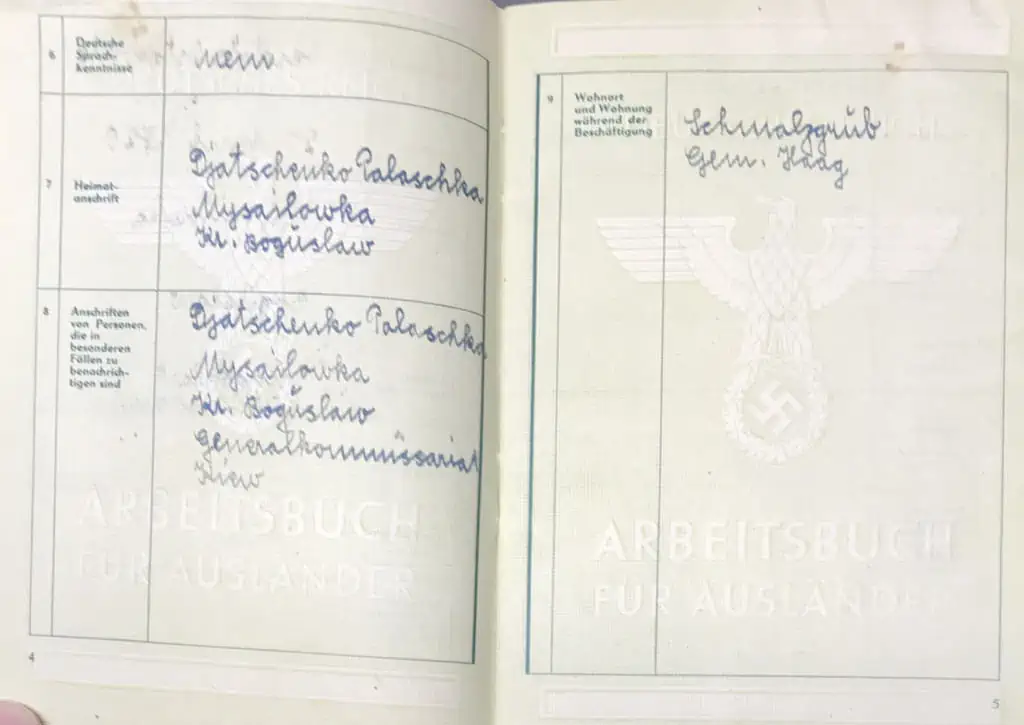 6
Deutsche
Sprach-
kenntnisse
nein
7
Heimat-
anschrift
Djatschenko Palaschka
Mysailowka
Kr. Boguslaw
8
Anschriften
von Personen,
die in
besonderen
Fällen zu
benachrich-
tigen sind
Djatschenko Palaschka
Mysailowka
Kr. Boguslaw
Generalkommissariat
Kiew
ARBEITSBUCH
FÜR AUSLÄNDER
4
9
Wohnort
und Wohnung
während der
Beschäftigung
Schmalzgrub
Gem. Haag
ARBEITSBUCH
FÜR AUSLÄNDER
5